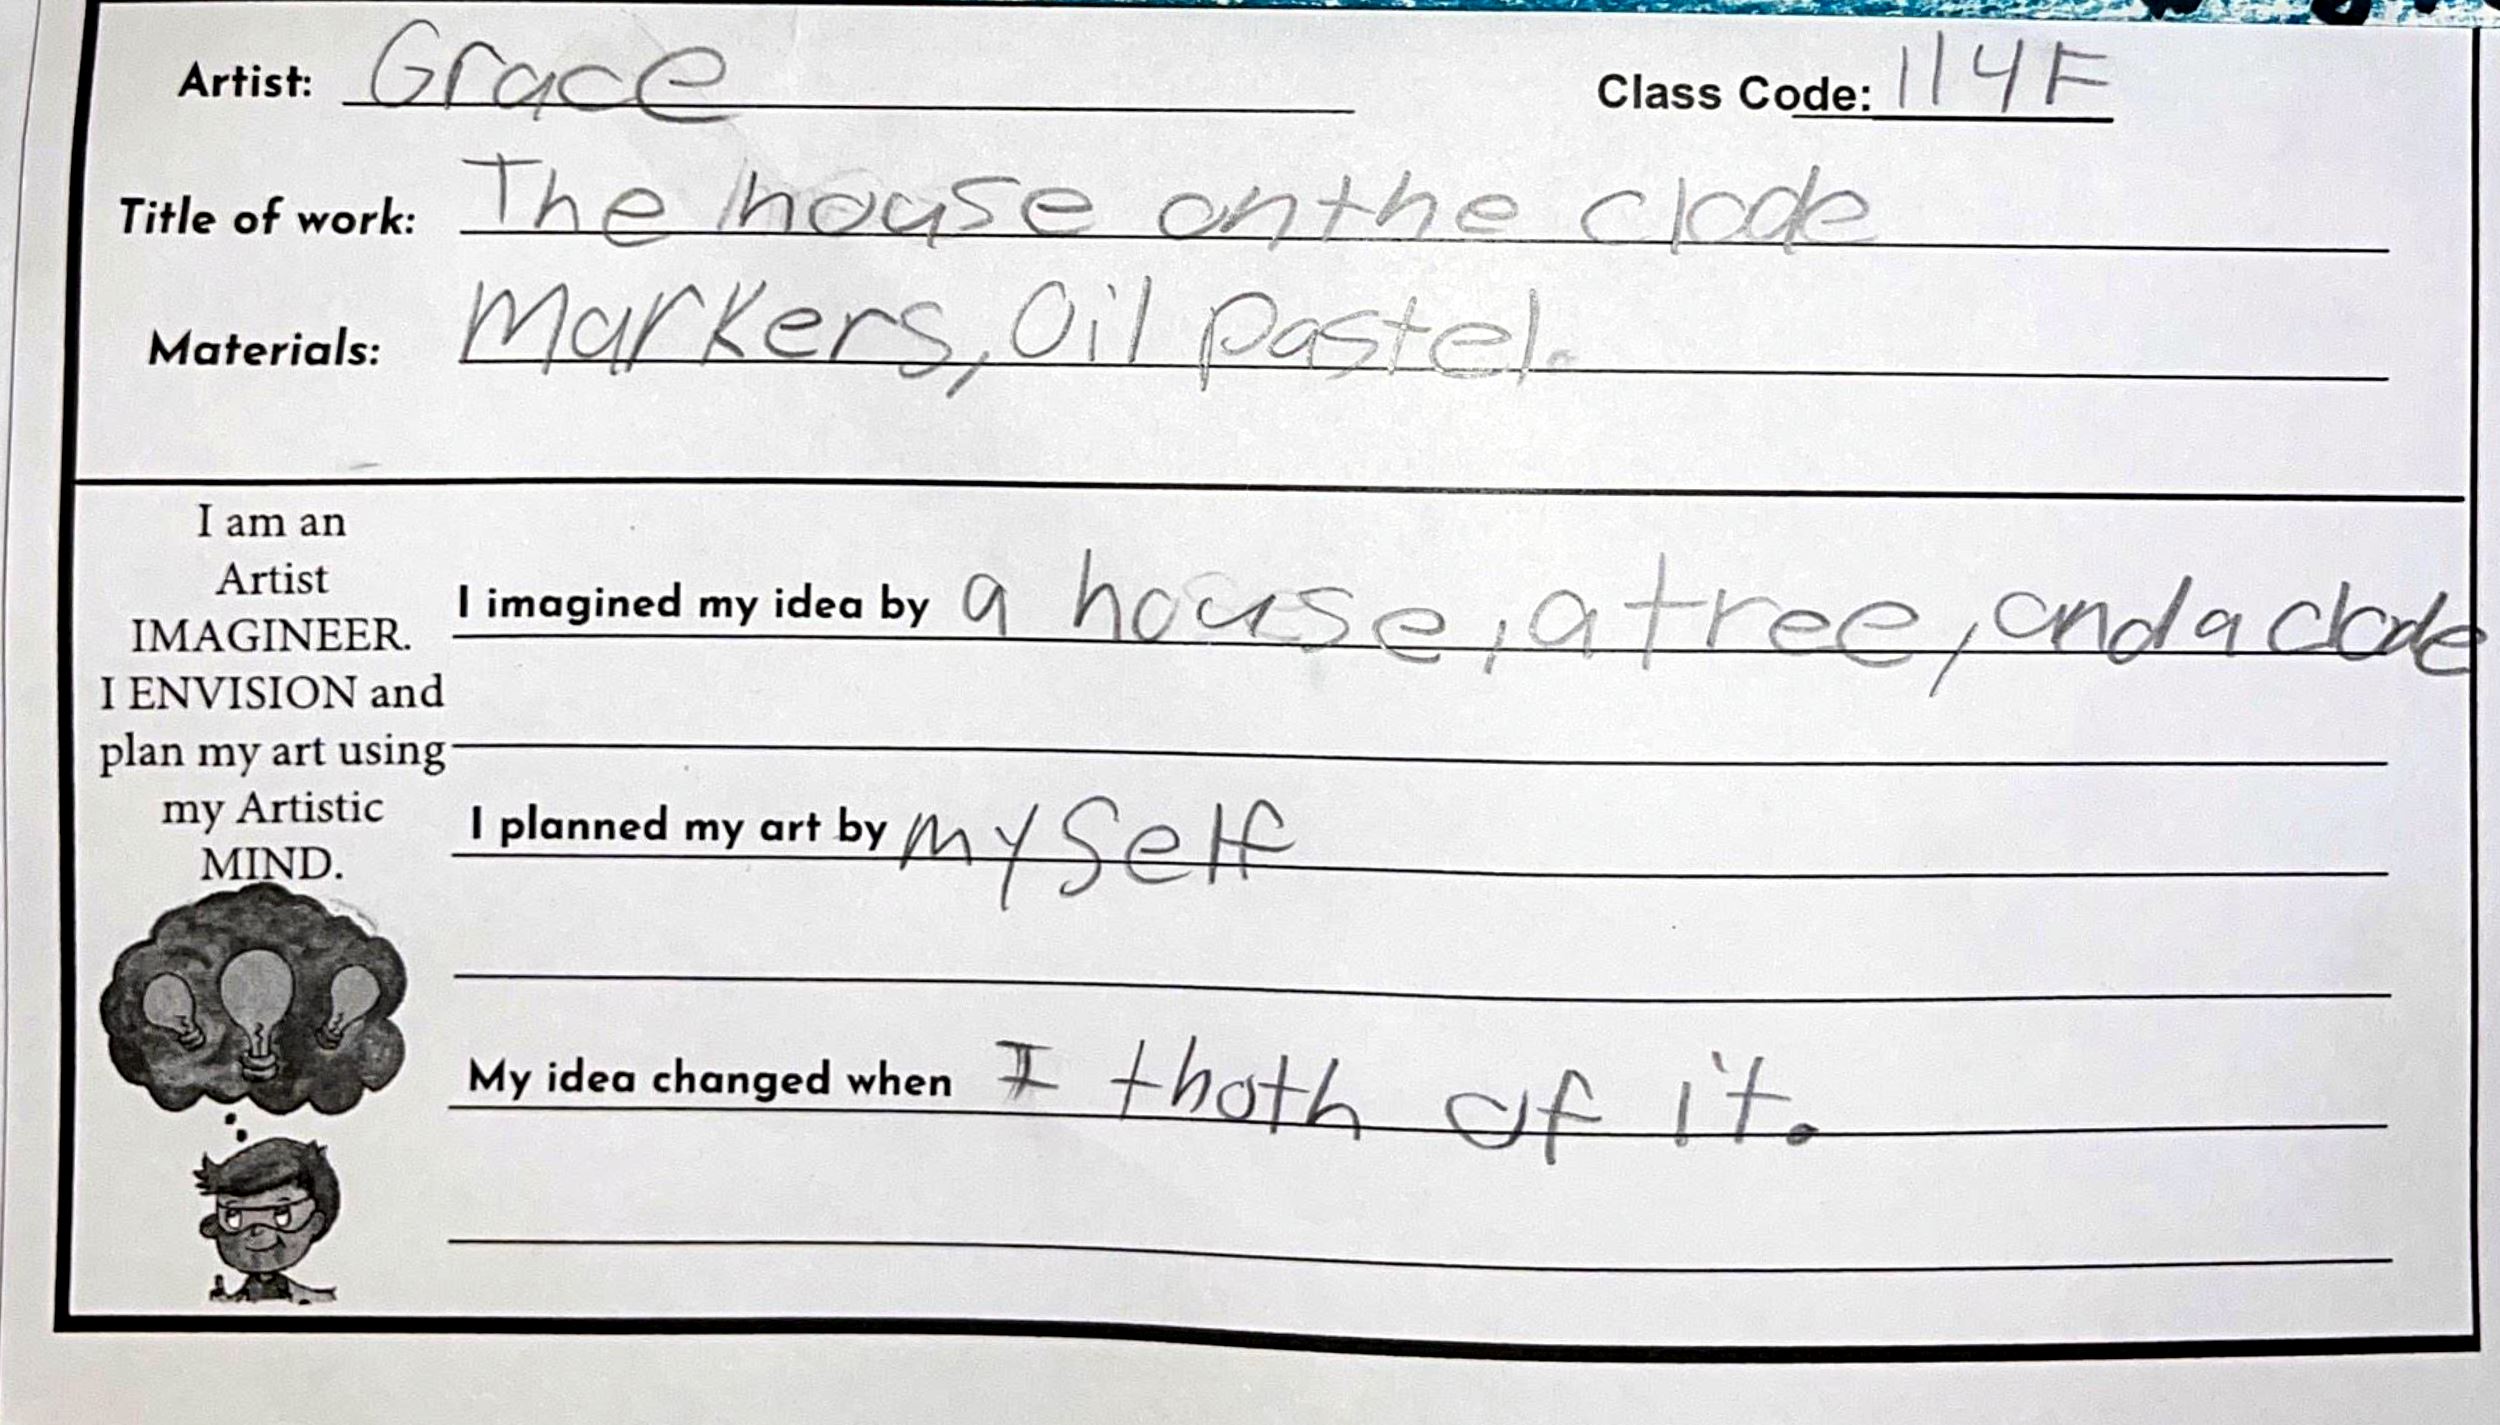 Artist: Grace Class Code: 114F
Title of work: The house onthe clode
Materials: Markers, Oil pastel.
I am an
Artist
IMAGINEER.
I ENVISION and
plan my art using
my Artistic
MIND.
I imagined my idea by a house, a tree, and a clode
I planned my art by mySelf
My idea changed when I thoth of it.